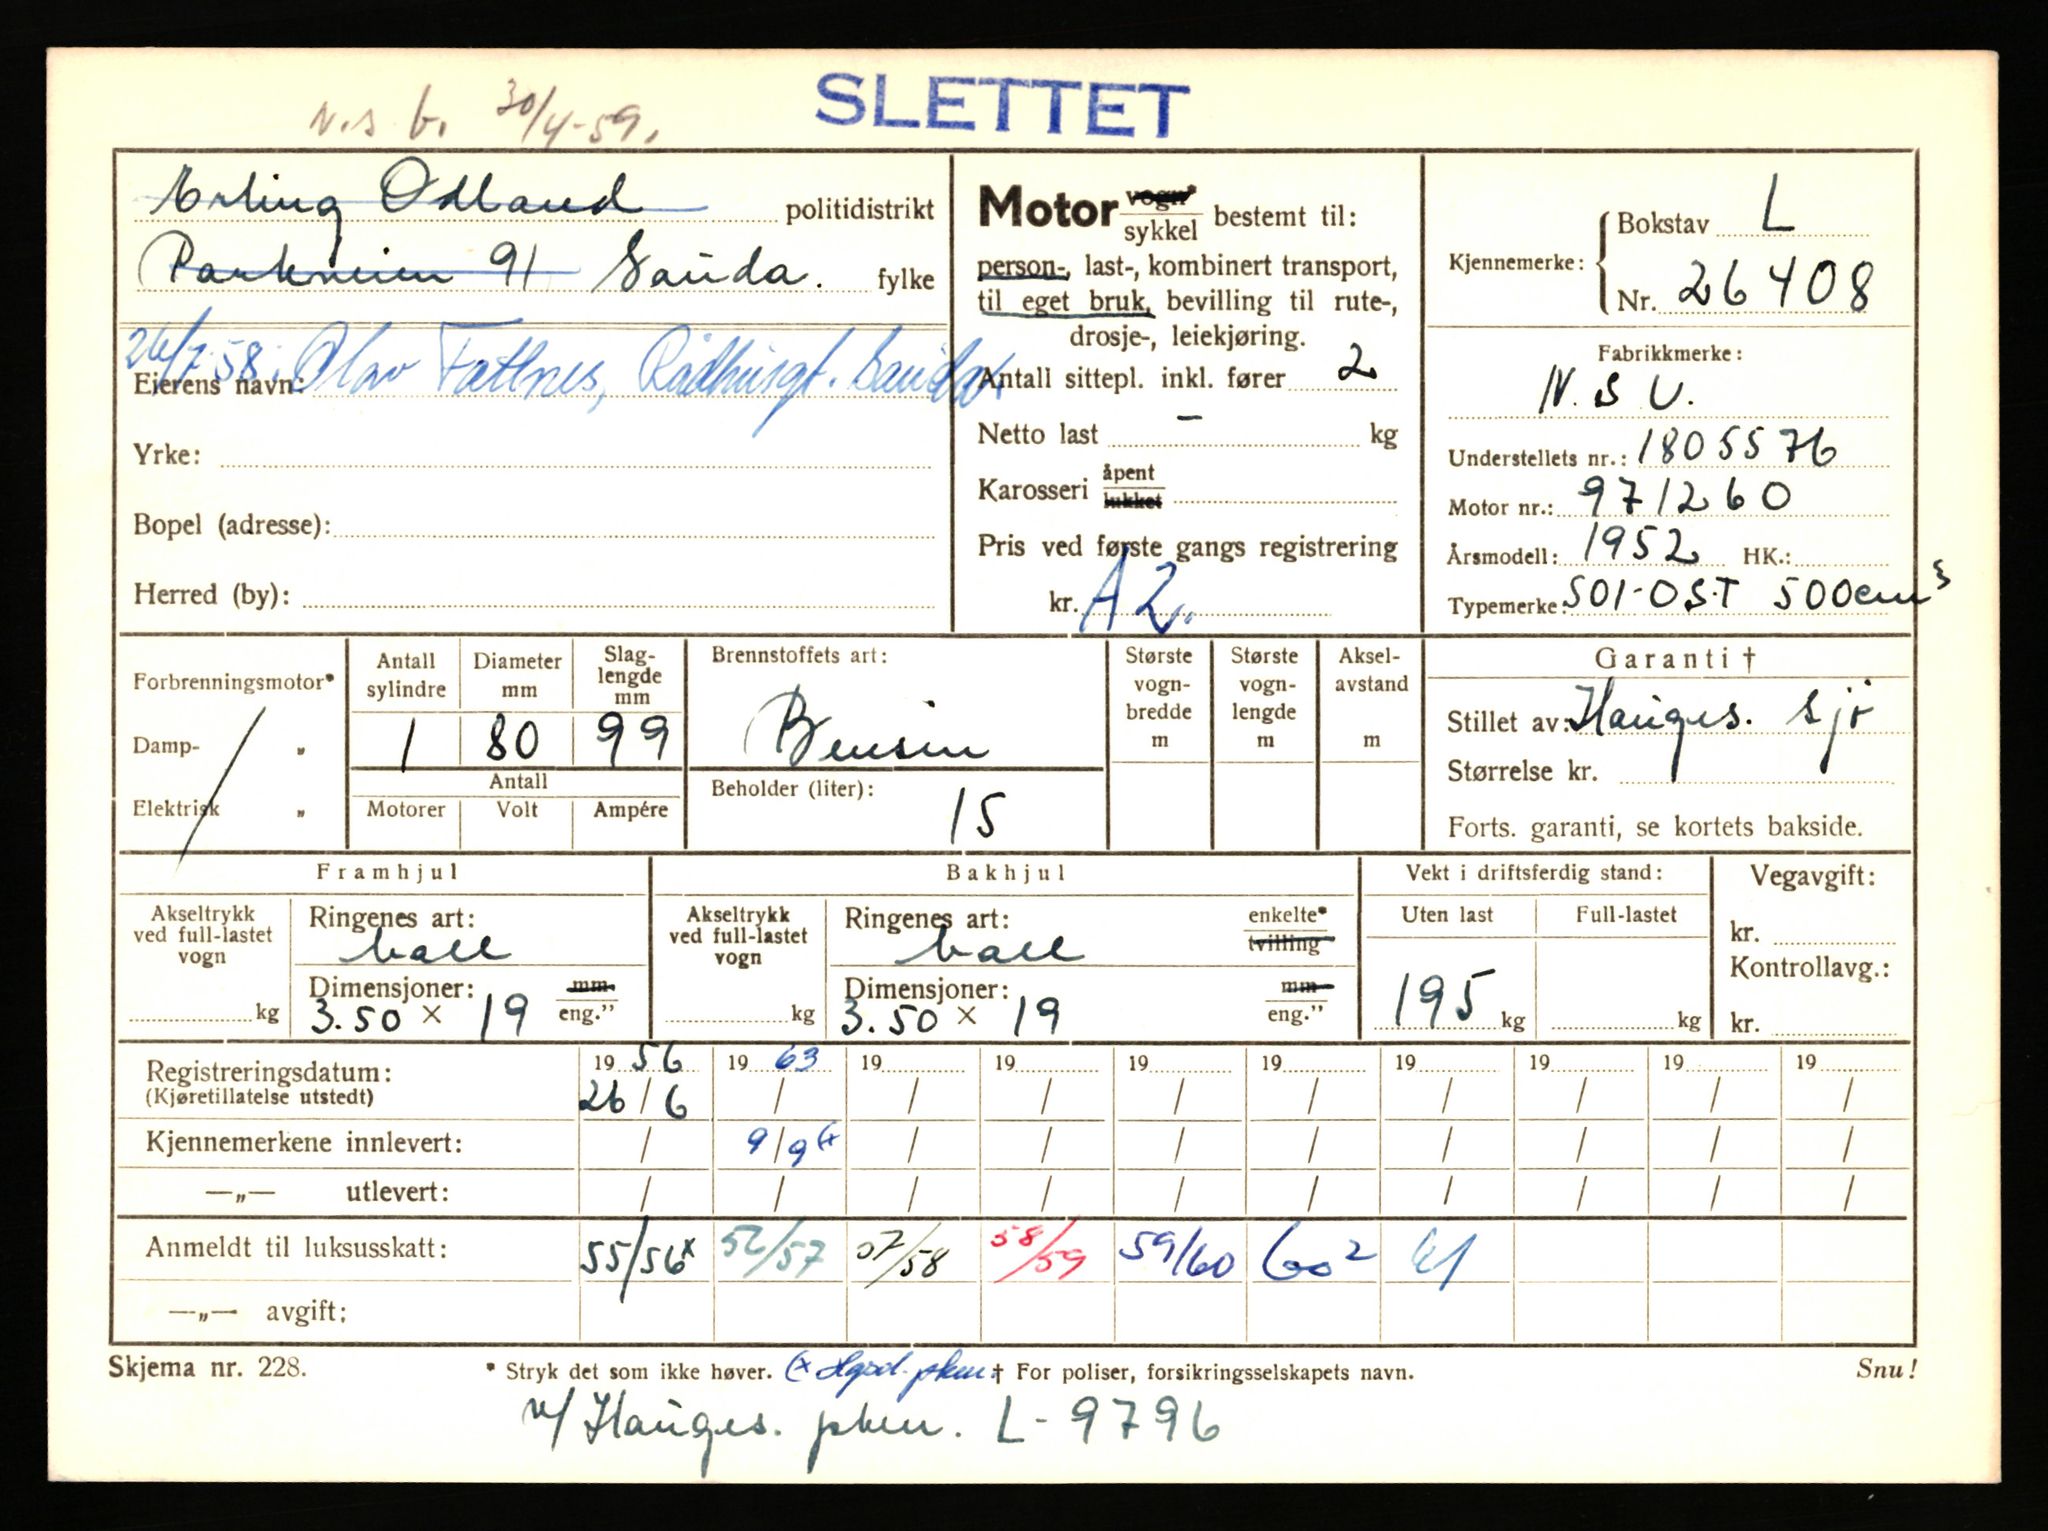 SLETTET
N.s b. 30/4-59.
Erling Odland politidistrikt
Parkveien 91 Sauda. fylke
26/7-58. Olav Fattnes, Rådhusgt. Sauda.
Eierens navn:
Yrke:
Bopel (adresse):
Herred (by):
Motor vogn* sykkel bestemt til:
person-, last-, kombinert transport,
til eget bruk, bevilling til rute-,
drosje-, leiekjøring.
Antall sittepl. inkl. fører 2
Netto last – kg
Karosseri åpent lukket
Pris ved første gangs registrering
kr. A 2.
Kjennemerke: Bokstav L
Nr. 26408
Fabrikkmerke:
N.S.U.
Understellets nr.: 1805576
Motor nr.: 971260
Årsmodell: 1952 HK.:
Typemerke: 501-OS.T 500cm³
Forbrenningsmotor*
Damp- „
Elektrisk „
Antall sylindre 1
Diameter mm 80
Slaglengde mm 99
Antall
Motorer Volt Ampére
Brennstoffets art:
Bensin
Beholder (liter):
15
Største vognbredde m
Største vognlengde m
Akselavstand m
Garanti †
Stillet av: Hauges. Sjø
Størrelse kr.
Forts. garanti, se kortets bakside.
Framhjul
Akseltrykk ved full-lastet vogn kg
Ringenes art:
ball
Dimensjoner: mm eng."
3.50 × 19
Bakhjul
Akseltrykk ved full-lastet vogn kg
Ringenes art: enkelte* tvilling
ball
Dimensjoner: mm eng."
3.50 × 19
Vekt i driftsferdig stand:
Uten last Full-lastet
195 kg kg
Vegavgift:
kr.
Kontrollavg.:
kr.
19 56 19 63 19 19 19 19 19 19 19 19
Registreringsdatum: 26/6 / / / / / / / / /
(Kjøretillatelse utstedt)
Kjennemerkene innlevert: / 9/9 (x / / / / / / / /
—„— utlevert: / / / / / / / / / /
Anmeldt til luksusskatt: 55/56x 56/57 57/58 58/59 59/60 60² 61
—„— avgift:
Skjema nr. 228. * Stryk det som ikke høver. (x Hgsd. pkm. † For poliser, forsikringsselskapets navn. Snu!
v/ Hauges. pkm. L-9796